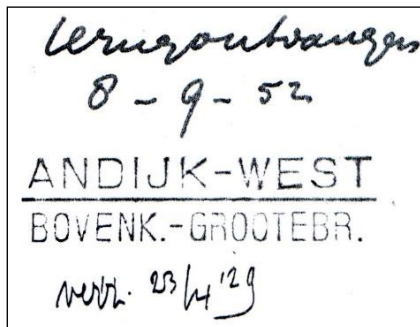 terugontvangen
8 - 9 - 52
ANDIJK-WEST
BOVENK.-GROOTEBR.
verz. 23/4 '29